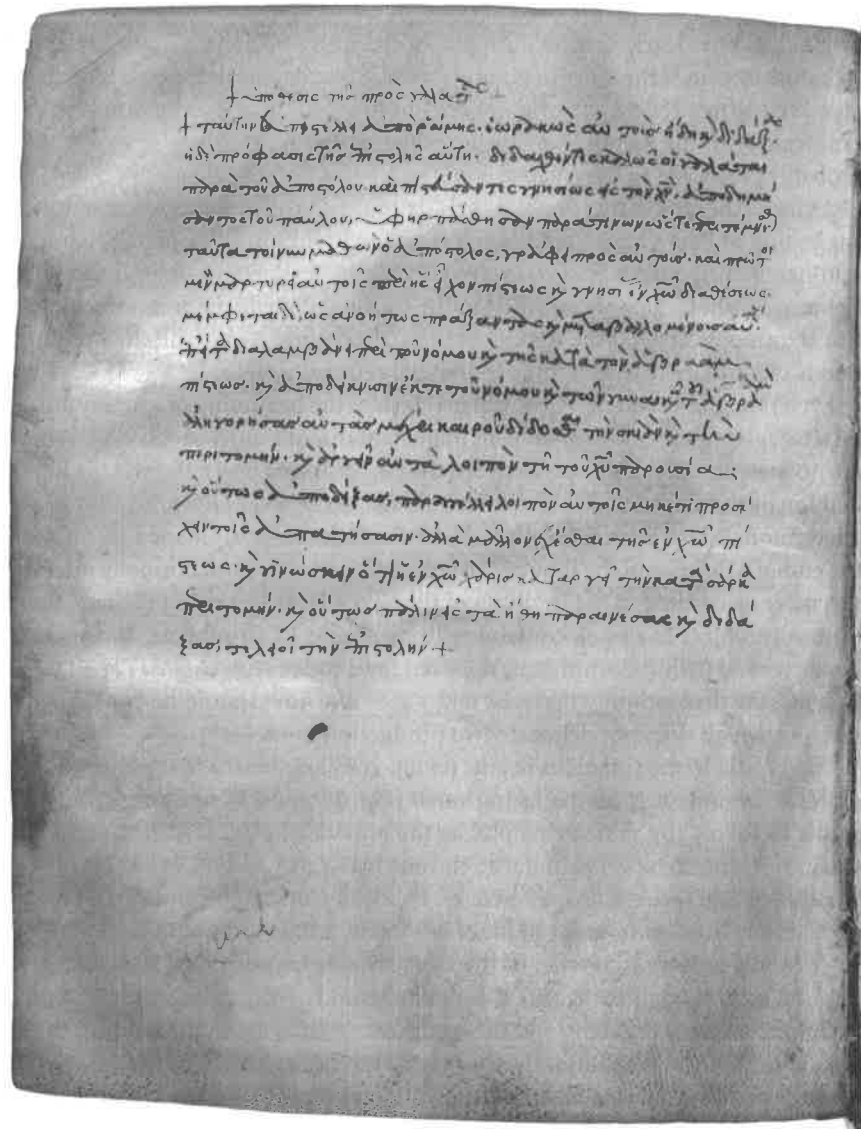 + ὑπόθεσις τῆς πρὸς γαλάτας +
+ ταύτην ἐπιστέλλει ἀπὸ ῥώμης· ἑωρακὼς αὐτοὺς ἤδη κὴ διδάξας·
ἡ δὲ πρόφασις τῆς ἐπιστολῆς αὕτη· διδαχθέντες καλῶς οἱ γαλάται
παρὰ τοῦ ἀποστόλου· καὶ πιστεύσαντες γνησίως εἰς τὸν χν· ἀποδημή
σαντος τοῦ παύλου, ὑφηρπάσθησαν παρά τινων ὥστε περιτέμνεσθαι
ταῦτα τοίνυν μαθὼν ὁ ἀπόστολος, γράφει πρὸς αὐτούς· καὶ πρῶτον
μὲν μαρτυρεῖ αὐτοῖς περὶ ἧς εἶχον πίστεως κὴ γνησίας ἐν χῶ διαθέσεως·
μέμφεται δὲ, ὡς ἀνοήτως πράξαντας κὴ μεταβαλλομένοις αὐτοῖς·
ἔπειτα διαλαμβάνει περὶ τοῦ νόμου κὴ τῆς κατὰ τὸν ἀβραὰμ
πίστεως· κὴ ἀποδείκνυσιν ἔκ τε τοῦ νόμου κὴ τῶν γυναικῶν τοῦ ἀβραὰμ
ἀλληγορήσας αὐτὰς μέχρι καιροῦ δίδοσθαι τὴν σκιὰν κὴ τὴν
περιτομήν· κὴ ἀργεῖν αὐτὰ λοιπὸν τῆ τοῦ χυ παρουσία·
κὴ οὕτως ἀποδείξας, παραγγέλλει λοιπὸν αὐτοῖς μηκέτι προσέ
χειν τοῖς ἀπατήσασιν· ἀλλὰ μᾶλλον ἔχεσθαι τῆς ἐν χῶ πί
στεως· κὴ γινώσκειν ὅτι ἡ ἐν χῶ χάρις καταργεῖ τὴν κατὰ σάρκα
περιτομήν· κὴ οὕτως πάλιν εἰς τὰ ἤθη παραινέσας κὴ διδά
ξας, τελειοῖ τὴν ἐπιστολήν +